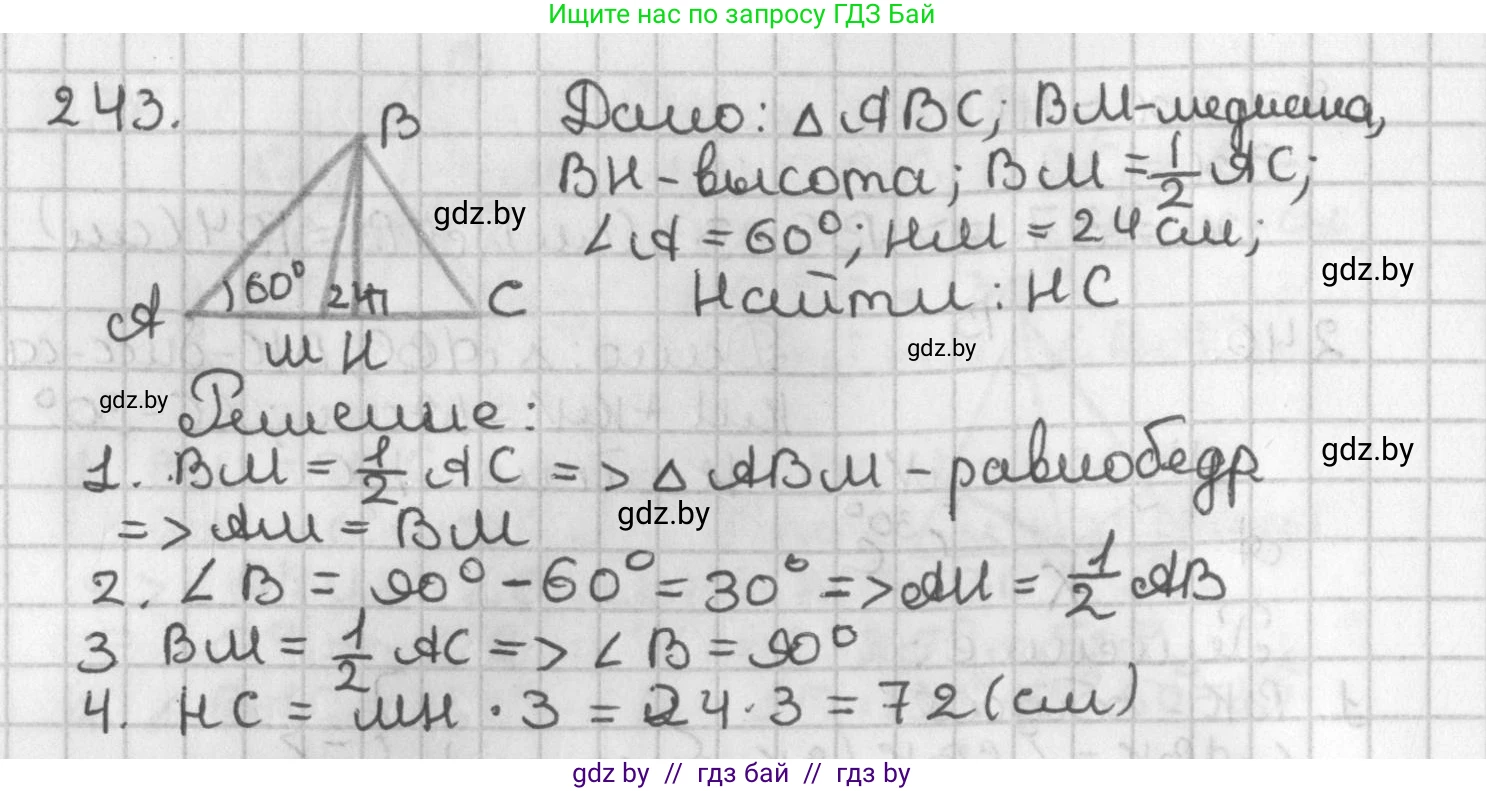 Ищите нас по запросу ГДЗ Бай
243.
B
Дано: △ ABC; BM-медиана,
BH-высота; BM = 1/2 AC;
gdz.by
∠A = 60°; HM = 24 см;
gdz.by
60°
24
A
C
Найти: HC
M H
gdz.by
gdz.by
Решение:
1. BM = 1/2 AC => △ ABM - равнобедр
gdz.by
gdz.by
=> AM = BM
2. ∠B = 90° - 60° = 30° => AH = 1/2 AB
3 BM = 1/2 AC => ∠B = 90°
4. HC = MH · 3 = 24 · 3 = 72 (см)
gdz by // гдз бай // гдз by